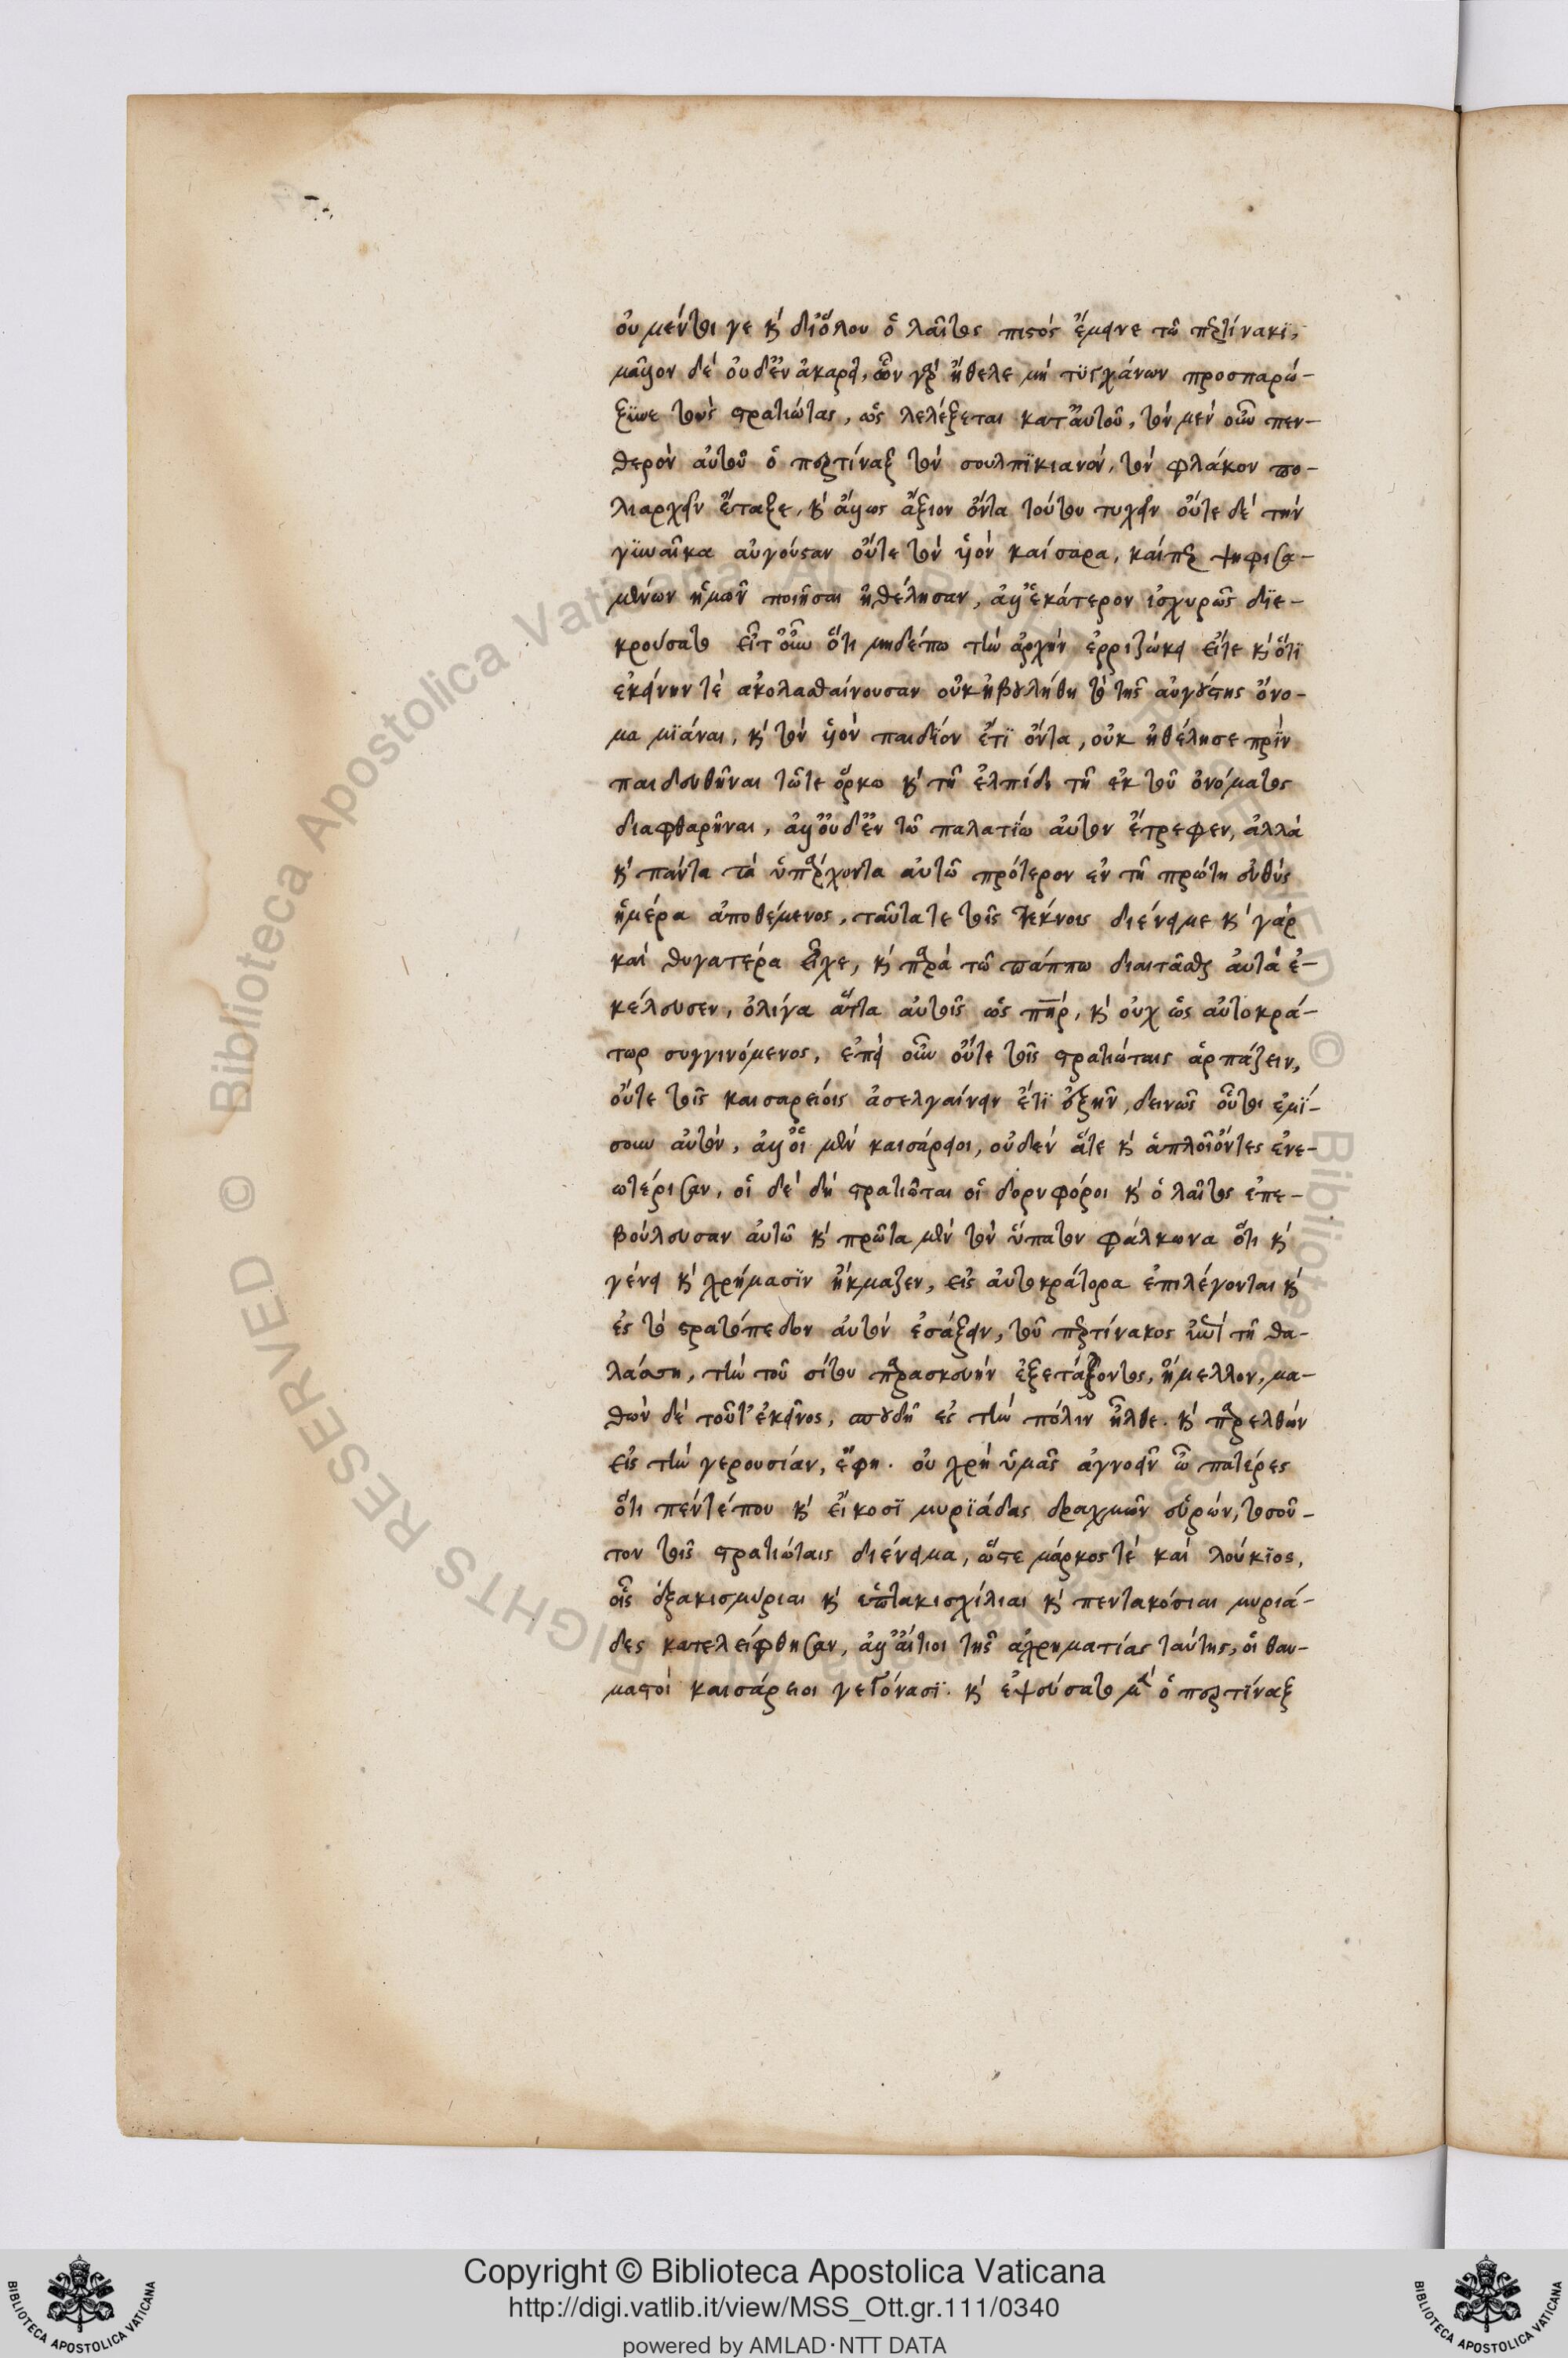 οὐ μέντοι γε καὶ διόλου ὁ λαῖτος πιστός ἔμεινε τῶ περτίνακϊ,
μᾶλλον δὲ οὐδἐν ἀκαρεῖ, ὧν γὰρ ἤθελε μή τϋγχάνων προσπαρώ-
ξϋνε τοὺς στρατιώτας, ὡς λελέξεται κατ' αὐτοῦ, τὸν μέν οὖν πεν-
θερὸν αὐτοῦ ὁ περτίναξ τὸν σουλπϊκιανόν, τὸν φλάκον πο-
λιαρχεῖν ἔταξε, καὶ ἄλλως ἄξιον ὄντα τούτου τυχεῖν οὔτε δὲ τὴν
γϋναῖκα αὐγούσαν οὔτε τὸν ὑὸν καίσαρα, καίπερ ψηφισα-
μένων ἡμῶν ποιῆσαι ἠθέλησαν, ἀλλ' ἑκάτερον ἰσχυρῶς δϊε-
κρούσατο εἴτ' οὖν ὅτι μηδέπω τὴν ἀρχὴν ἐρριζώκει εἴτε καὶ ὅτϊ
ἐκείνην τὲ ἀκολασταίνουσαν οὐκ ἠβουλήθη τὸ τῆς αὐγούστης ὄνο-
μα μϊάναι, καὶ τὸν ὑὸν παιδϊόν ἔτϊ ὄντα, οὐκ ἠθέλησε πρϊν
παιδευθῆναι τῶτε ὅρκω καὶ τῆ ἐλπίδι τῆ ἐκ τοῦ ὀνόματος
διαφθαρῆναι, ἀλλ' οὐδἐν τῶ παλατϊω αὐτὸν ἔτρεφεν, ἀλλὰ
καὶ πάντα τὰ ὑπάρχοντα αὐτῶ πρότερον ἐν τῆ πρώτη εὐθὺς
ἡμέρα ἀποθέμενος, ταῦτα τε τοῖς τέκνοις διένειμε καὶ γάρ
καὶ θυγατέρα εἶχε, καὶ παρὰ τῶ πάππω διαιτᾶσθαι αὐτὰ ἐ-
κέλευσεν, ὀλίγα ἄττα αὐτοῖς ὡς πὴρ, καὶ οὐχ ὡς αὐτοκρά-
τωρ συγγινόμενος, ἐπεὶ οὖν οὔτε τοῖς στρατιώταις ἁρπάζειν,
οὔτε τοῖς καισαρείοις ἀσελγαίνειν ἔτϊ ἐξῆν, δεινῶς οὗτοι ἐμϊ-
σουν αὐτὸν, ἀλλ' οἱ μὲν καισάρειοι, οὐδὲν ἅτε καὶ ἁπλοϊόντες ἐνε-
ωτέρισαν, οἱ δὲ δὴ στρατιῶται οἱ δορυφόροι καὶ ὁ λαῖτος ἐπε-
βούλευσαν αὐτῶ καὶ πρῶτα μὲν τὸν ὕπατον φάλκωνα ὅτι καὶ
γένει καὶ χρήμασϊν ἤκμαζεν, εἰς αὐτοκράτορα ἐπιλέγονται καὶ
ἐς τὸ στρατόπεδον αὐτὸν ἐσάξειν, τοῦ περτίνακος ἐπὶ τῆ θα-
λάσση, τὴν τοῦ σίτου παρασκευήν ἐξετάζοντος, ἤμελλον, μα-
θὼν δὲ τοῦτ' ἐκεῖνος, σπουδῆ ἐς τὴν πόλιν ἦλθε. καὶ παρελθὼν
εἰς τὴν γερουσίαν, ἔφη. οὐ χρὴ ὑμᾶς ἀγνοεῖν ὦ πατέρες
ὅτι πέντέπου καὶ εἴκοσϊ μυρϊάδας δραχμῶν εὑρών, τοσοῦ-
τον τοῖς στρατιώταις διένειμα, ὥστε μάρκος τὲ καὶ λούκϊος,
οἷς ἑξακισμύριαι καὶ ἑπτακισχίλιαι καὶ πεντακόσιαι μυριά-
δες κατελείφθησαν, ἀλλ' αἴτιοι τῆς ἀχρηματίας ταύτης, οἱ θαυ-
μαστοὶ καισάρειοι γεγόνασϊ. καὶ ἐψεύσατο μὲν ὁ περτϊναξ